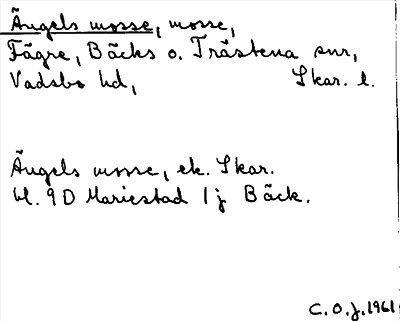 Ängels mosse, mosse,
Fägre, Bäcks o. Trästena snr,
Vadsbo hd, Skar. l.
Ängels mosse, ek. Skar.
bl. 9D Mariestad 1j Bäck.
C.O.J. 1961